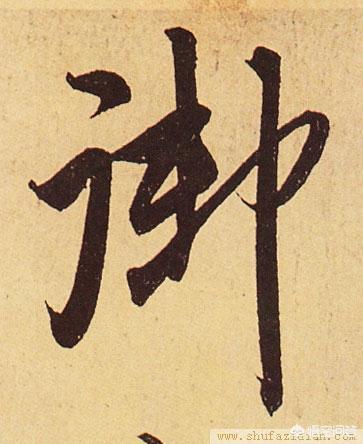 御
www.shufazidian.com
悟空问答